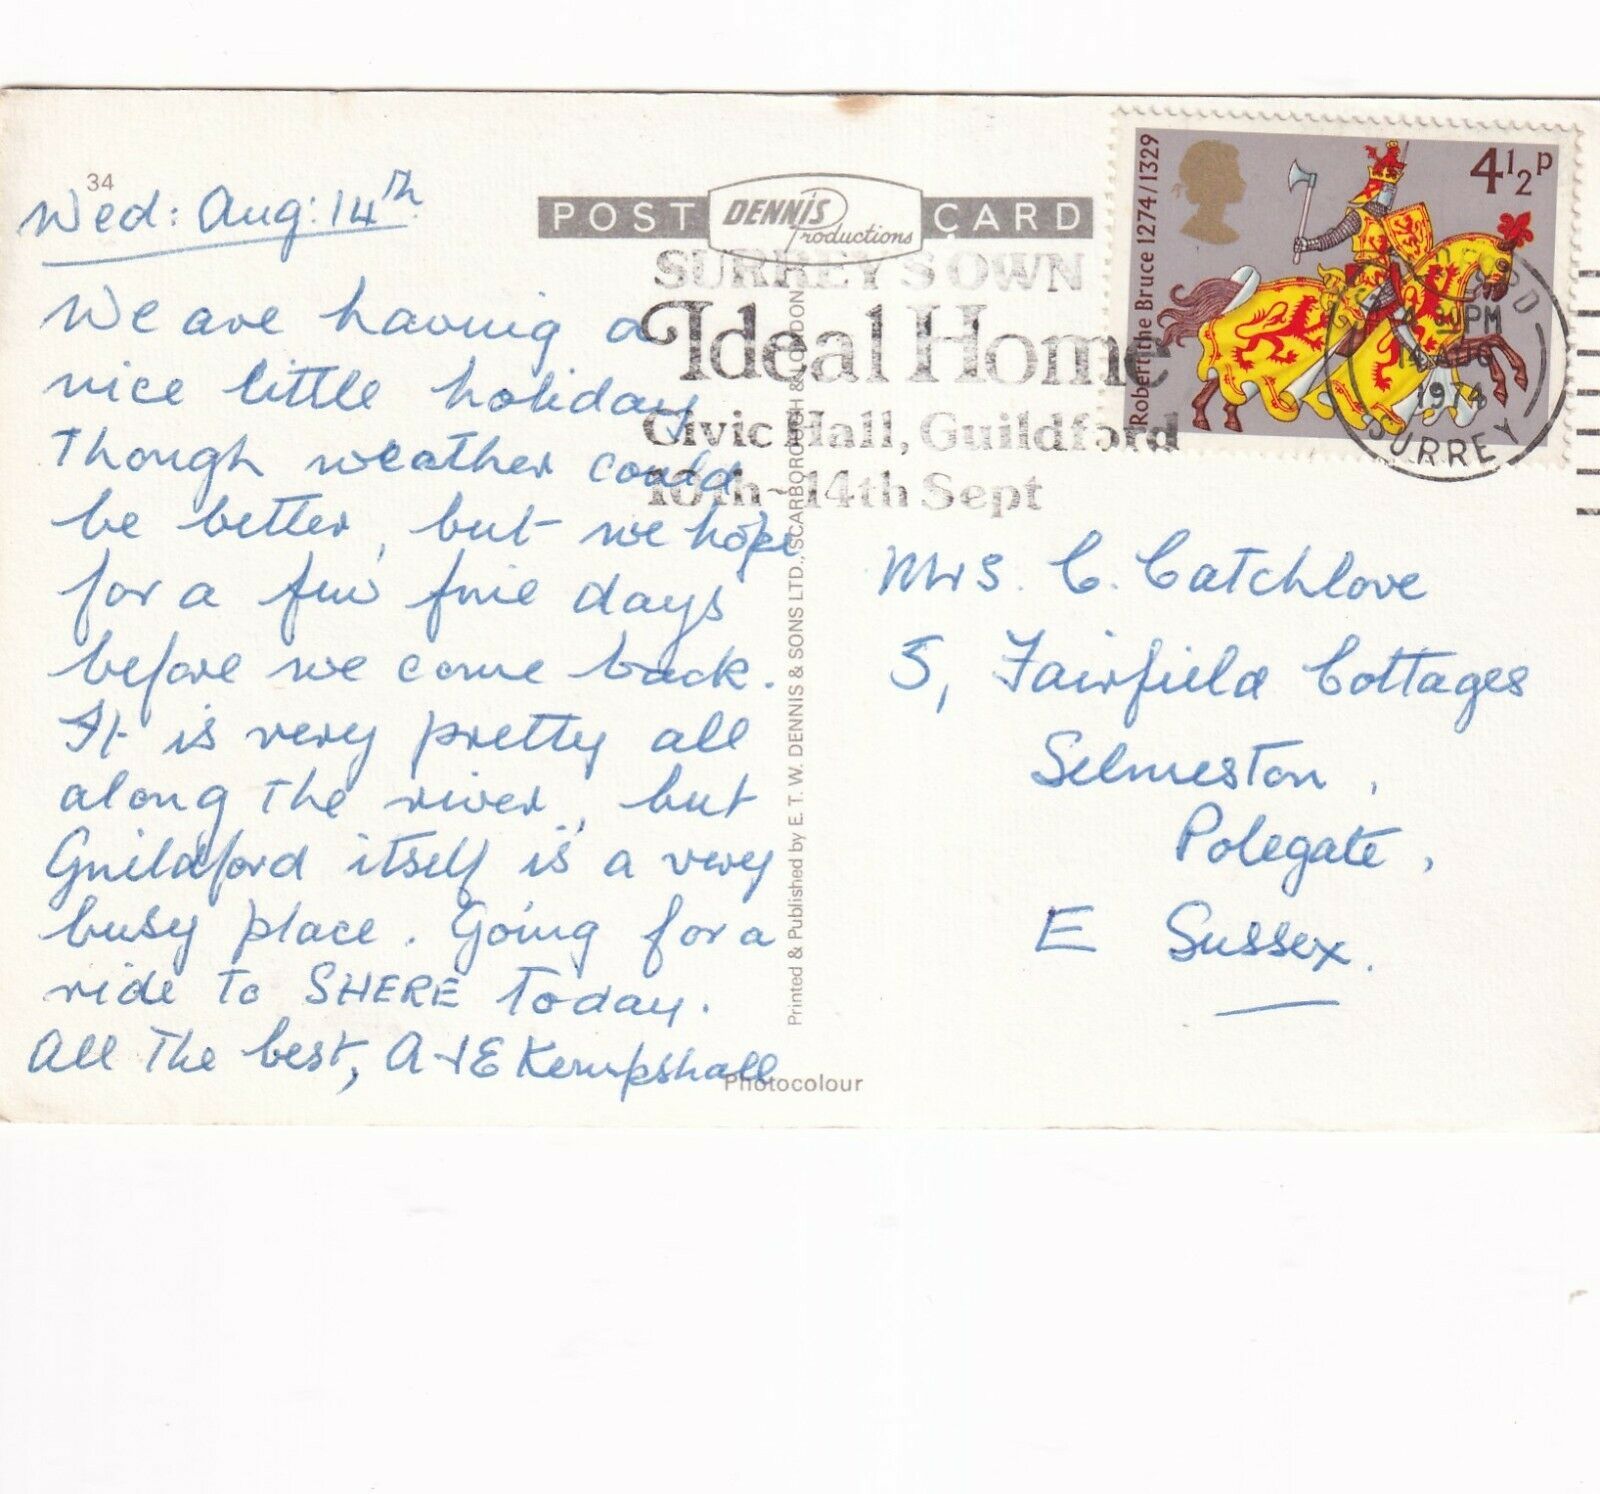 34
Wed: Aug: 14th
We are having a
nice little holiday
though weather could
be better, but we hope
for a few fine days
before we come back.
It is very pretty all
along the river, but
Guildford itself is a very
busy place. Going for a
ride to SHERE today.
All the best, A + E Kempshall
POST CARD
DENNIS
Productions
SURREY'S OWN
Ideal Home
Civic Hall, Guildford
10th - 14th Sept
Printed & Published by E. T. W. DENNIS & SONS LTD., SCARBOROUGH & LONDON
Photocolour
Robert the Bruce 1274/1329
4½p
PM
14 AUG
1974
SURREY
Mrs. C. Catchlove
5, Fairfield Cottages
Selmeston,
Polegate,
E Sussex.